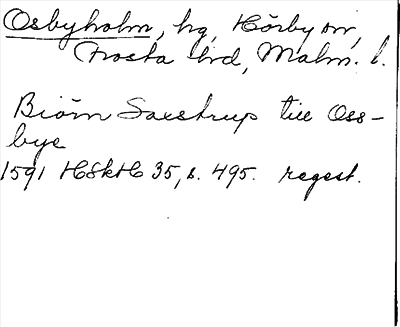 Osbyholm, hg, Hörby sn,
Frosta hd, Malm. l.
Biörn Saxstrup till Oss-
bye
1591 HSkH 35, s. 495. regest.